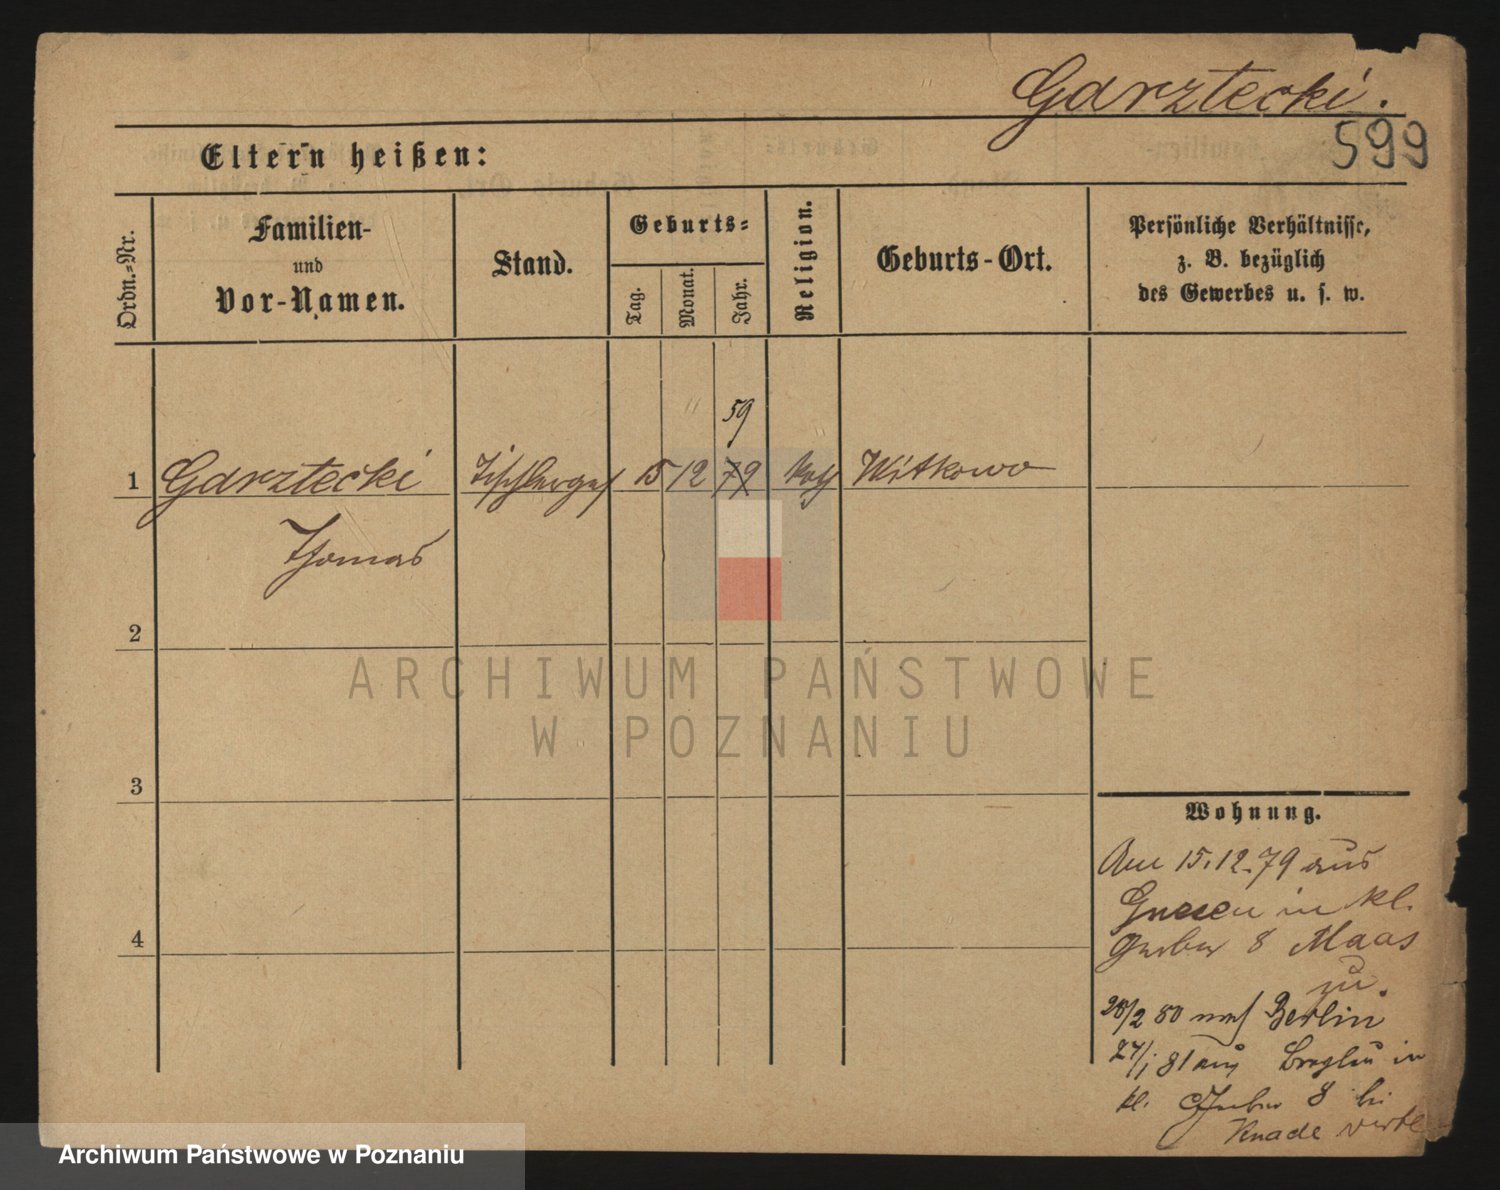 Garztecki.
599
Eltern heißen:
Ordn.-Nr.
Familien-
und
Vor-Namen.
Stand.
Geburts-
Tag.
Monat.
Jahr.
Religion.
Geburts-Ort.
Persönliche Verhältnisse,
z. B. bezüglich
des Gewerbes u. s. w.
59
1 Garztecki Tischlerges 15 12 79 Kath Witkowo
Thomas
2
3
4
Wohnung.
Am 15.12.79 aus
Gnesen in kl.
Gerber 8 Maas
zu.
28/2 80 nach Berlin
27/1 81 aus Breslau in
kl. Gerber 8 bei
Knade
ARCHIWUM PAŃSTWOWE
W POZNANIU
Archiwum Państwowe w Poznaniu